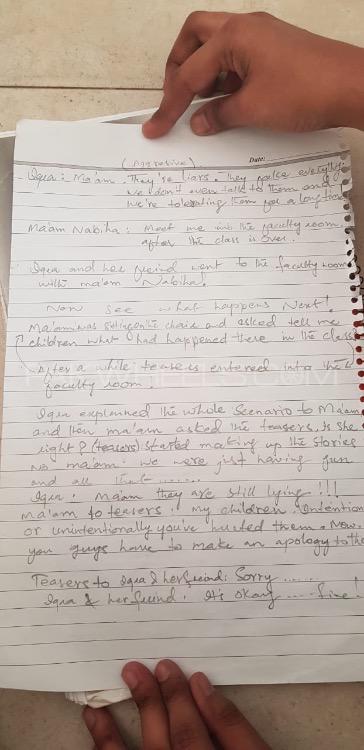 (Aggresive) Date:
Iqua: Ma'am. They're liars. They police everytime
we don't even talk to them and
we're tolerating them for a long time
Ma'am Nabiha: Meet me into the faculty room.
after the class is over.
Iqua and her friend went to the faculty room
with ma'am Nabiha!
Now see what happens Next!
Ma'am was sitting on the chair and asked tell me
children what had happened there in the class
After a while teasers entered into the
faculty room.
Iqua explained the whole Scenario to Ma'am
and then ma'am asked the teasers, is she
right? (teasers) started making up the stories
No ma'am. we were just having fun
and all that ......
Iqua: Ma'am they are still lying!!!
Ma'am to teasers: My children Intention
or unintentionally you've hurted them. Now.
you guys have to make an apology to the
Teasers to Iqua & her friend: Sorry .....
Iqua & her friend: It's okay ..... fine.